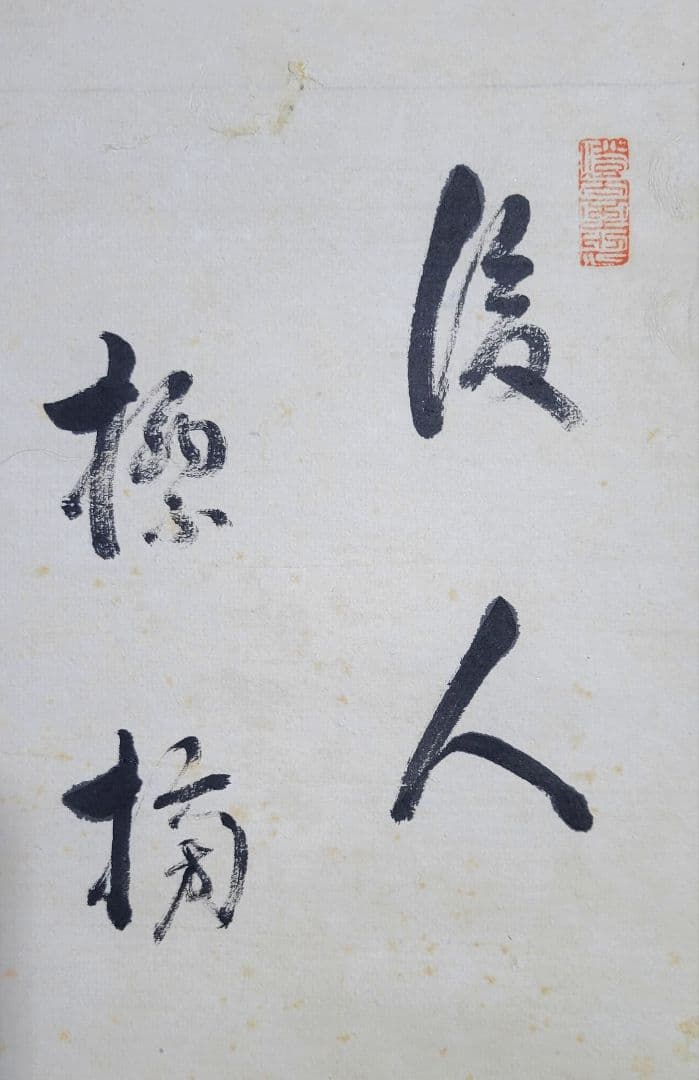 後人
標榜